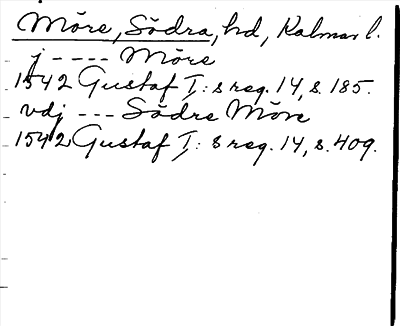 Möre, Södra, hd, Kalmar l.
j ----- Möre
1542 Gustaf I:s reg. 14, s. 185.
vdj --- Södre Möre
1542 Gustaf I:s reg. 14, s. 409.